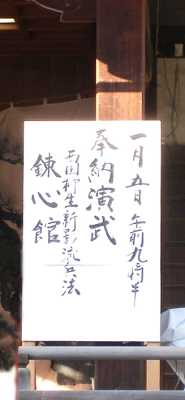 一月五日午前九時半
奉納演武
西国柳生新影流兵法
錬心館